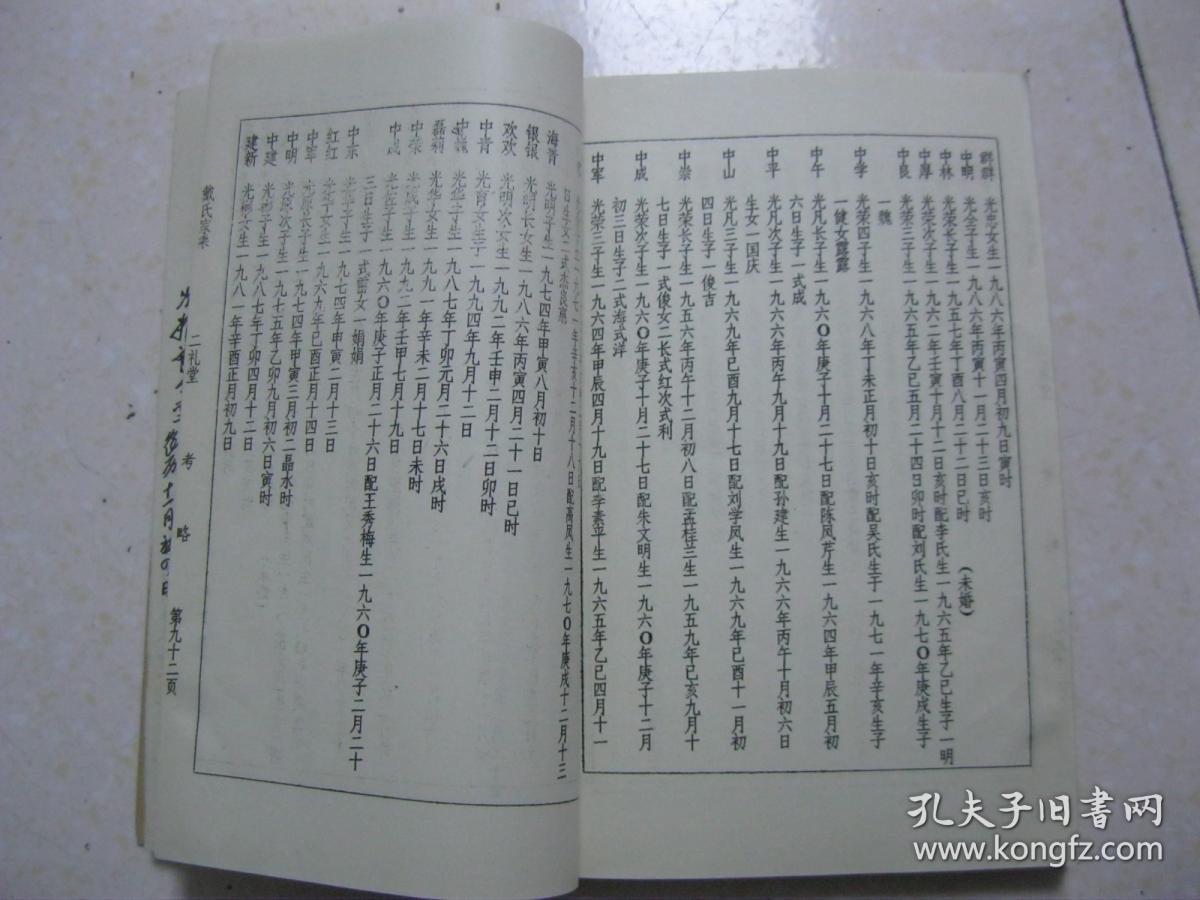 群群 光忠女生一九八六年丙寅四月初九日寅时
中明 光金子生一九八六年丙寅十一月二十三日亥时
中林 光荣长子生一九五七年丁酉八月二十二日巳时 (未婚)
中厚 光荣次子生一九六二年壬寅十月十二日亥时配李氏生一九六五年乙巳生子一明
中良 光荣三子生一九六五年乙巳五月二十四日卯时配刘氏生一九七〇年庚戌生子
一魏
中学 光荣四子生一九六八年丁未正月初十日亥时配吴氏生于一九七一年辛亥生子
一健女露露
中午 光凡长子生一九六〇年庚子十月二十七日配陈凤芹生一九六四年甲辰五月初
六日生子一式成
中平 光凡次子生一九六六年丙午九月十九日配孙建生一九六六年丙午十月初六日
生女一国庆
中山 光凡三子生一九六九年已酉九月十七日配刘学凤生一九六九年已酉十一月初
四日生子一俊吉
中崇 光荣长子生一九五六年丙午十二月初八日配孟桂兰生一九五九年已亥九月十
七日生子一式俊女二长式红次式利
中成 光荣次子生一九六〇年庚子十月二十七日配朱文明生一九六〇年庚子十二月
初三日生子二式海式洋
中军 光荣三子生一九六四年甲辰四月十九日配李素平生一九六五年乙巳四月十一
一九七一年辛亥十二月十八日配高凤生一九七〇年庚戌十二月十三
日生女二式
海晋 光明子生一九七四年甲寅八月初十日
银银 光明长女生一九八六年丙寅四月二十一日巳时
欢欢 光明次女生一九九二年壬申二月十二日卯时
中青 光育女生于一九九四年九月十二日
中巍 光华子生一九八七年丁卯元月二十六日戌时
磊莉 光华女生一九九一年辛未二月十七日未时
中荣 光成子生一九九二年壬申七月十九日
中成 光 子生一九六〇年庚子正月二十六日配王秀梅生一九六〇年庚子二月二十
三日生子一式雷女一娟娟
中东 光 子生一九七四年甲寅二月十三日
红红 光 女生一九六九年已酉正月十四日
中军 光 长子生一九七四年甲寅三月初二晶水时
中明 光 次子生一九七五年乙卯九月初六日寅时
中建 光 子生一九八七年丁卯四月十二日
建新 光 女生一九八一年辛酉正月初九日
戴氏家乘 二礼堂 考 略 第九十二页
十一月初四日
孔夫子旧书网
www.kongfz.com